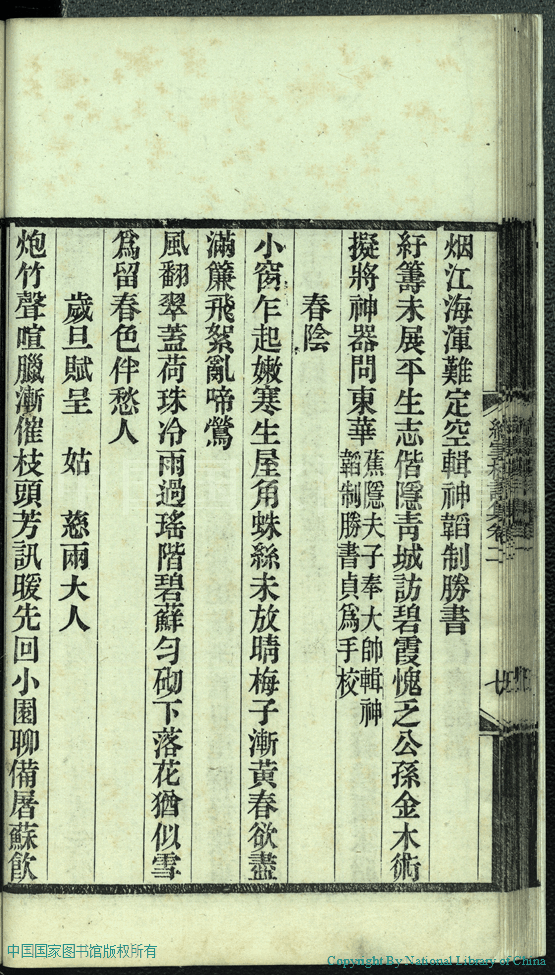 烟江海渾難定空輯神韜制勝書
紆籌未展平生志偕隱靑城訪碧霞愧乏公孫金木術
擬將神器問東華蕉隱夫子奉大帥輯神
韜制勝書貞爲手校
春陰
小窗乍起嫩寒生屋角蛛絲未放晴梅子漸黃春欲盡
滿簾飛絮亂啼鶯
風翻翠蓋荷珠冷雨過瑤階碧蘚勻砌下落花猶似雪
爲留春色伴愁人
歲旦賦呈 姑 慈雨大人
炮竹聲喧臘漸催枝頭芳訊暖先回小園聊備屠蘇飮
中国国家图书馆版权所有
Copyright By National Library of China